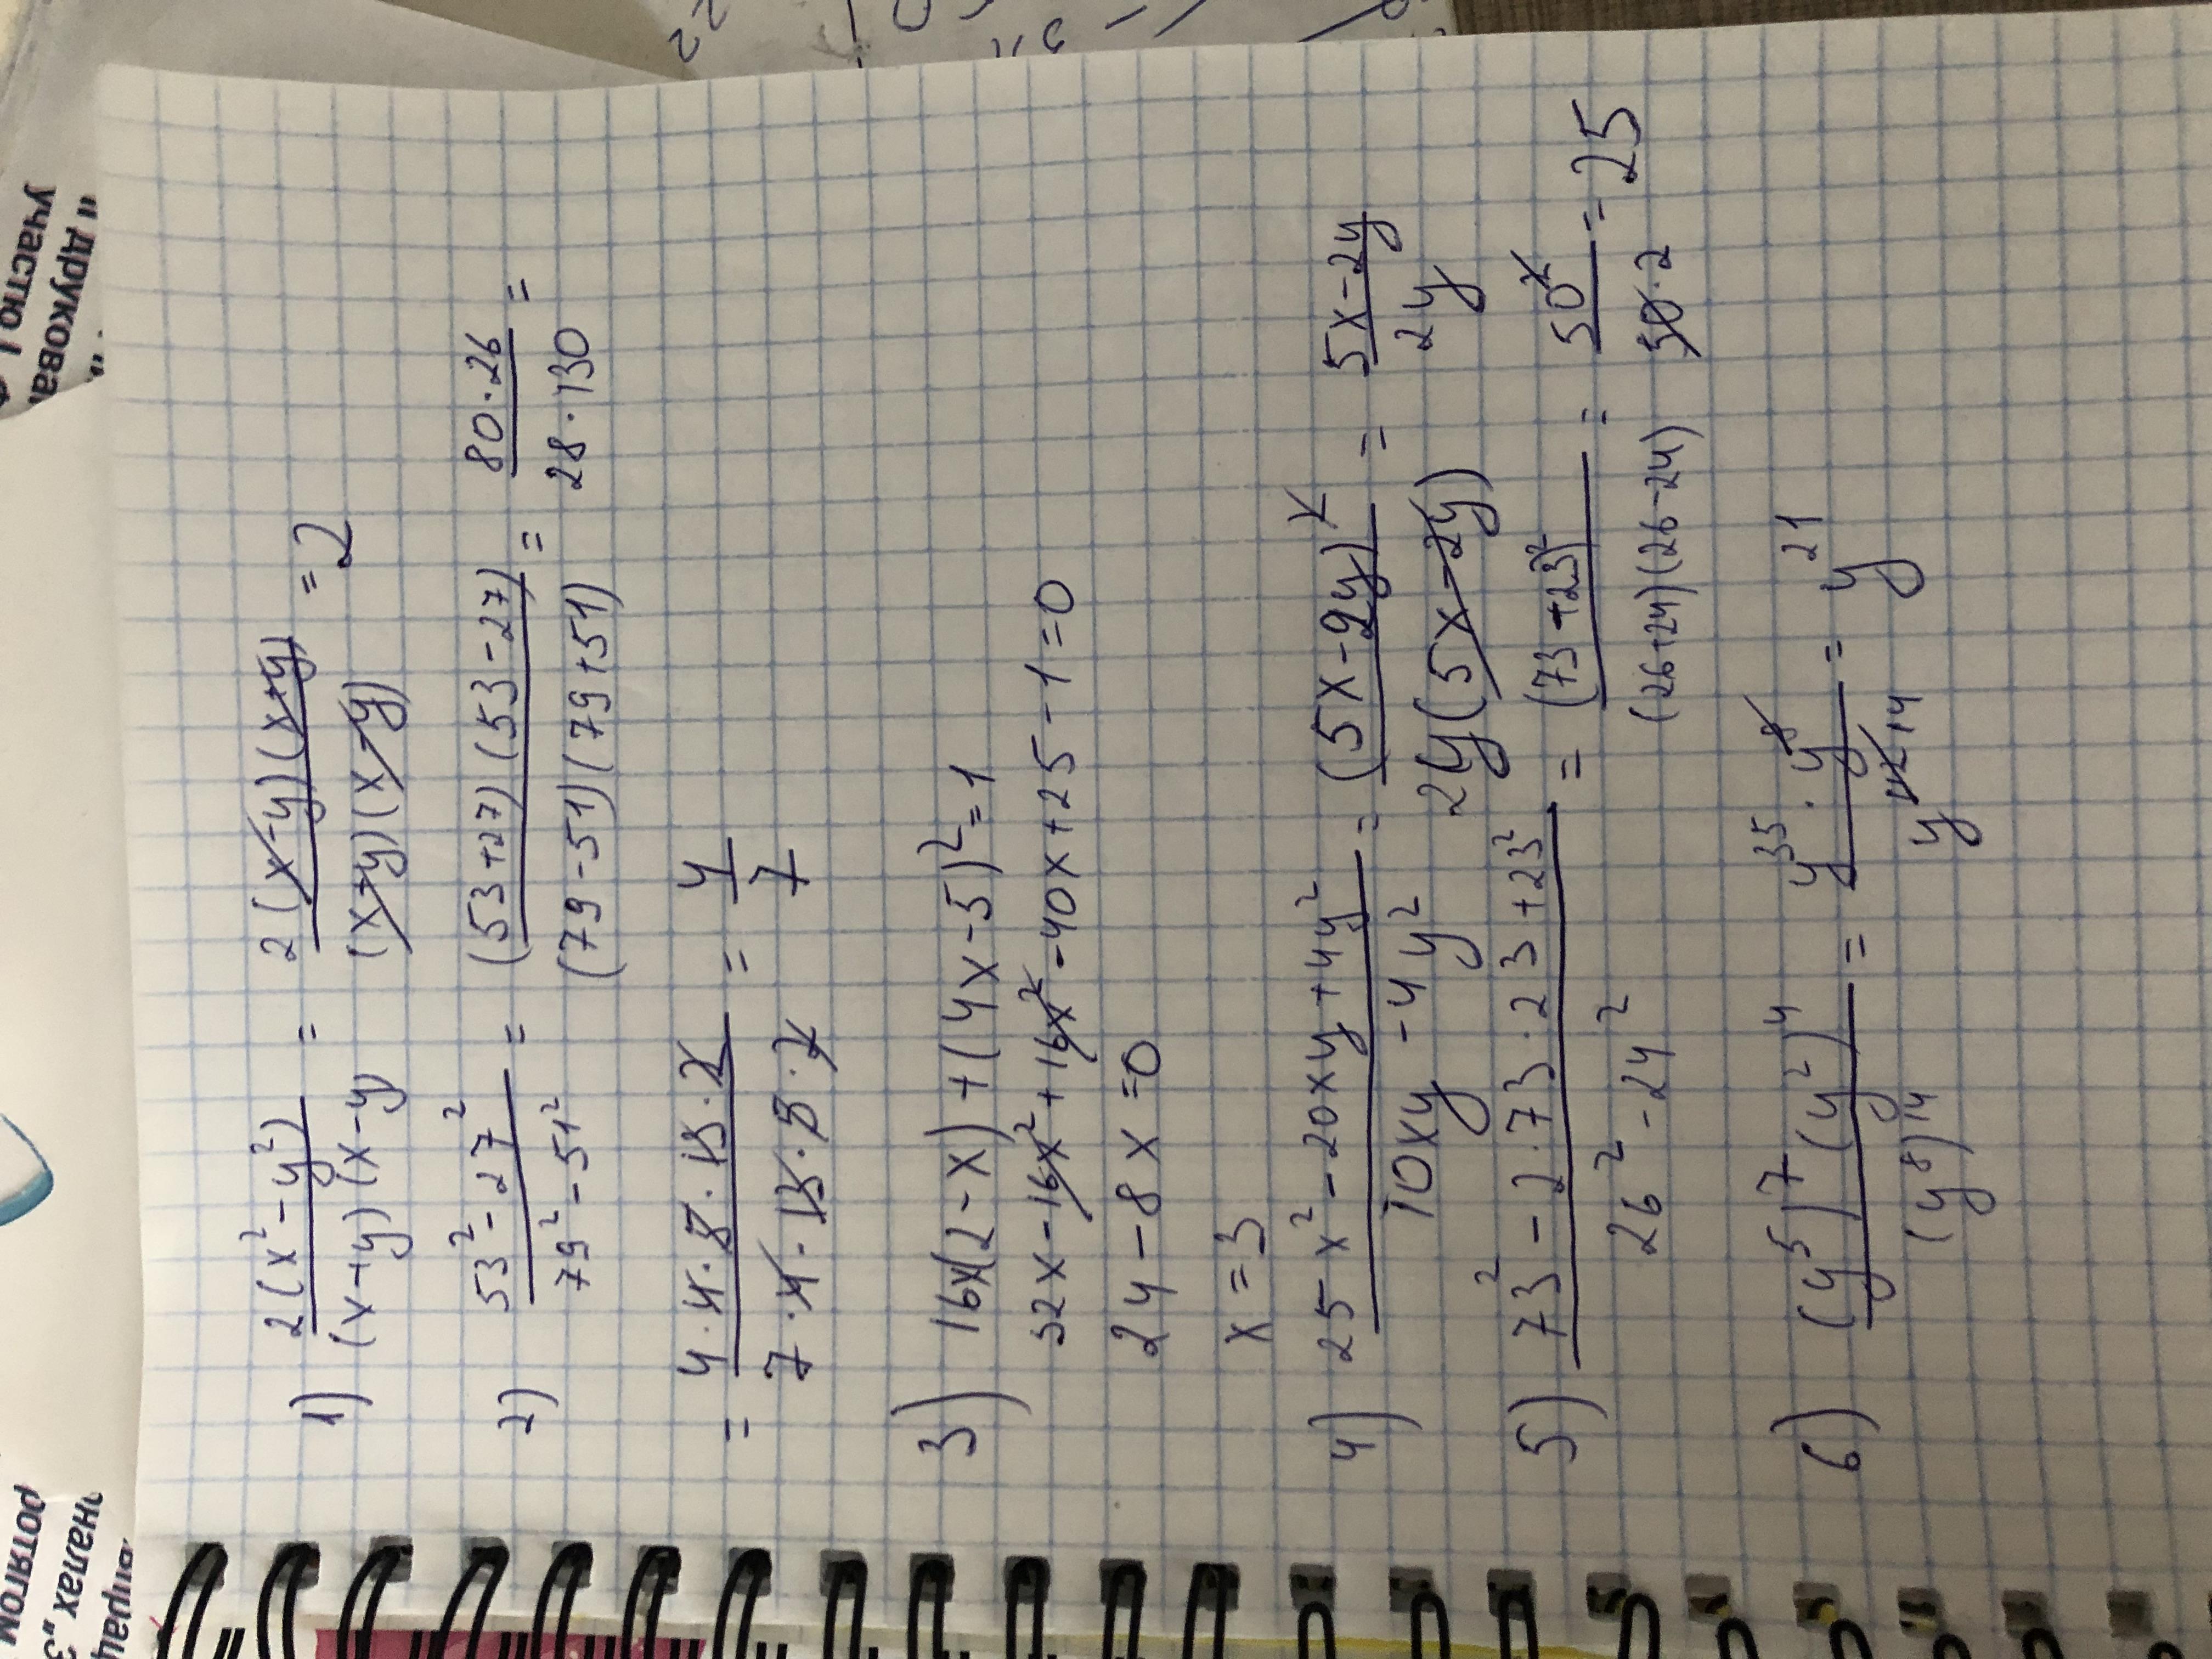 1) 2(x²-y²)/(x+y)(x-y) = 2(x-y)(x+y)/(x+y)(x-y) = 2
2) 53²-27²/79²-51² = (53+27)(53-27)/(79-51)(79+51) = 80·26/28·130 =
= 4·4·5·13·2/7·4·13·5·2 = 4/7
3) 16x(2-x)+(4x-5)²=1
32x-16x²+16x²-40x+25-1=0
24-8x=0
x=3
4) 25x²-20xy+4y²/10xy-4y² = (5x-2y)²/2y(5x-2y) = 5x-2y/2y
5) 73²-2·73·23+23²/26²-24² = (73+23)²/(26+24)(26-24) = 50²/50·2 = 25
6) (y⁵)⁷(y²)⁴/(y⁸)¹⁴ = y³⁵·y⁸/y¹⁴ = y²¹
"друкова
участю і
ротягом